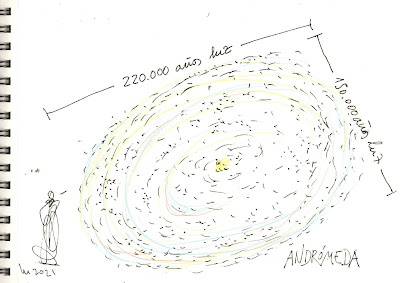 220.000 años luz
150.000 años luz
ANDRÓMEDA
2021